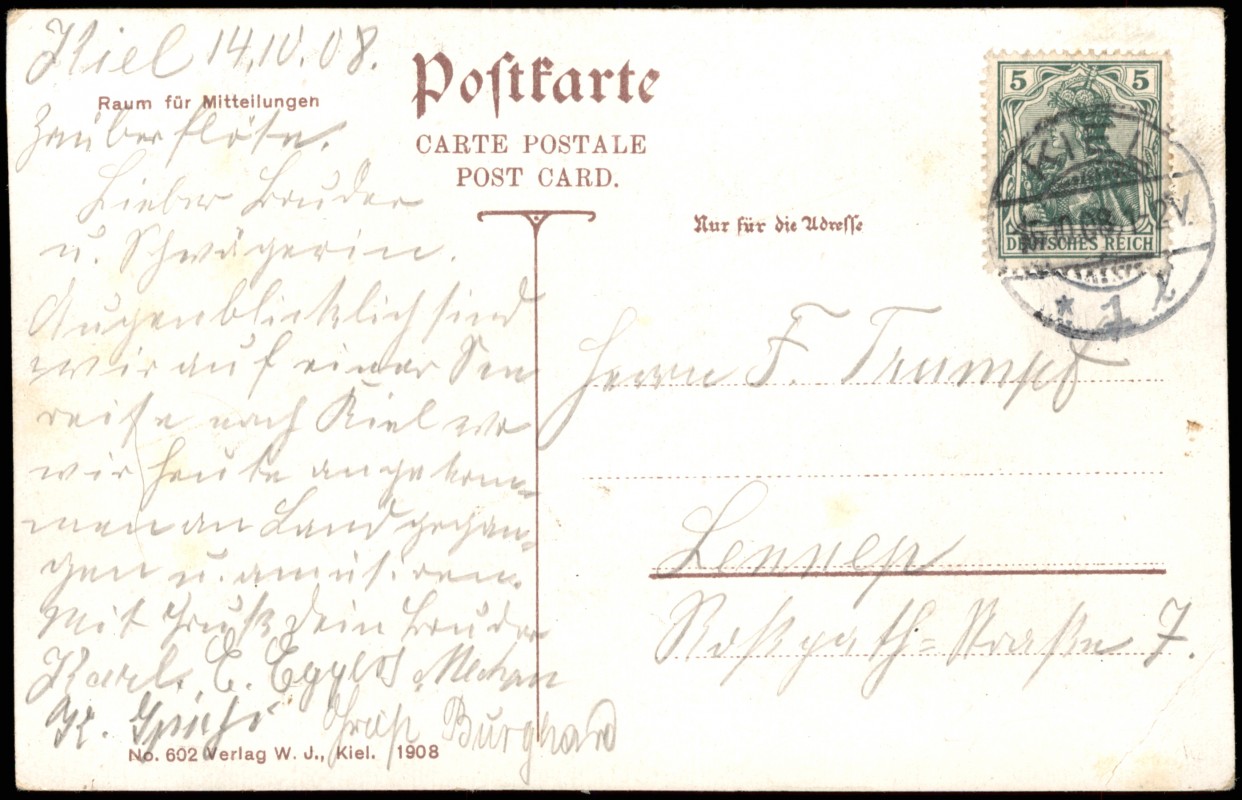 Kiel 14.10.08.
Raum für Mitteilungen
Zauberflöte.
Lieber Bruder
u. Schwägerin.
Augenblicklich sind
wir auf einer See
reise nach Kiel wo
wir heute angekom-
men an Land gegan-
gen u. amüsiren.
Mit Gruß Dein Bruder
Karl. E. Eggers
K. Burghard
No. 602 Verlag W. J., Kiel. 1908
Postkarte
CARTE POSTALE
POST CARD.
Nur für die Adresse
5 5
DEUTSCHES REICH
KIEL
10.08. 1-2V.
* 1
Herrn F. Trumpf
Lennep
Roßpath-Straße 7.